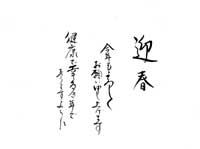 迎春
今年もよろしく
お願い申し上げます
健康で幸多き年で
ありますように